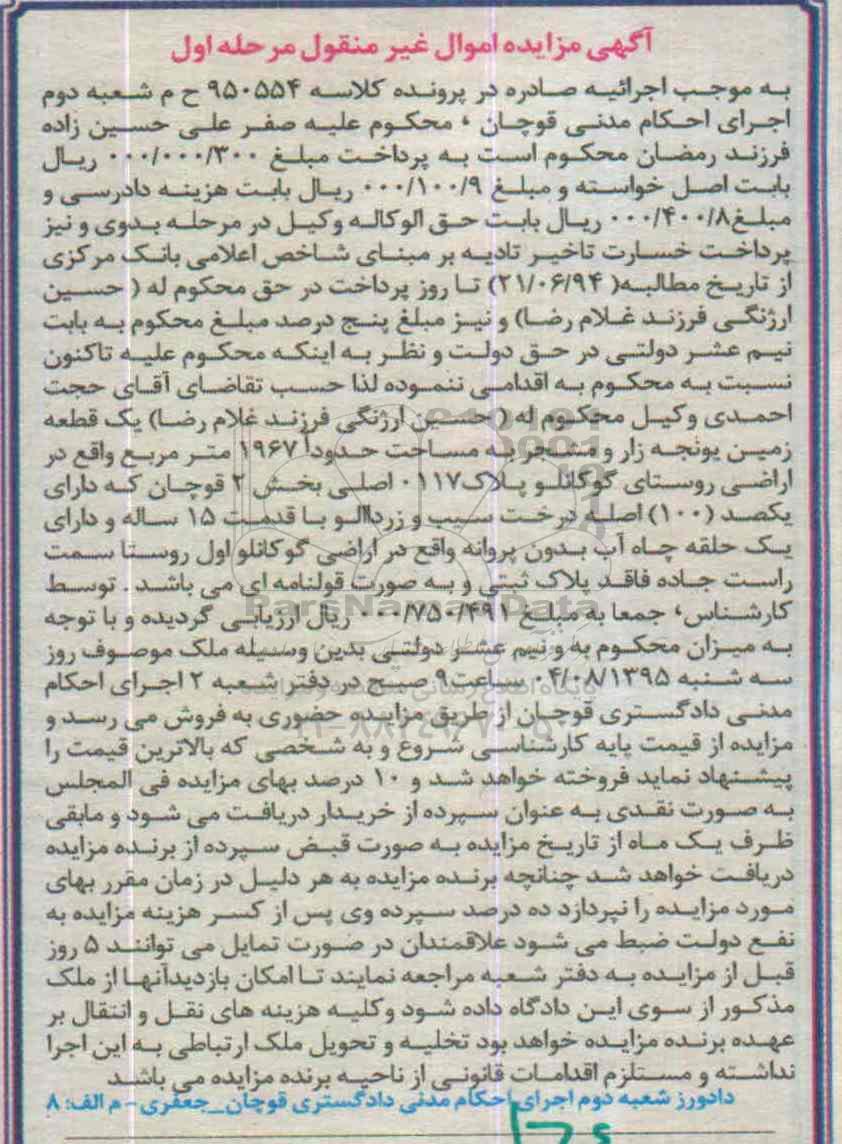 آگهی مزایده اموال غیر منقول مرحله اول
به موجب اجرائیه صادره در پرونده کلاسه ۹۵۰۵۵۴ ح م شعبه دوم
اجرای احکام مدنی قوچان ، محکوم علیه صفر علی حسین زاده
فرزند رمضان محکوم است به پرداخت مبلغ ۰۰۰/۰۰۰/۳۰۰ ریال
بابت اصل خواسته و مبلغ ۰۰۰/۱۰۰/۹ ریال بابت هزینه دادرسی و
مبلغ۰۰۰/۴۰۰/۸ ریال بابت حق الوکاله وکیل در مرحله بدوی و نیز
پرداخت خسارت تاخیر تادیه بر مبنای شاخص اعلامی بانک مرکزی
از تاریخ مطالبه( ۲۱/۰۶/۹۴) تا روز پرداخت در حق محکوم له ( حسین
ارژنگی فرزند غلام رضا) و نیز مبلغ پنج درصد مبلغ محکوم به بابت
نیم عشر دولتی در حق دولت و نظر به اینکه محکوم علیه تاکنون
نسبت به محکوم به اقدامی ننموده لذا حسب تقاضای آقای حجت
احمدی وکیل محکوم له ( حسین ارژنگی فرزند غلام رضا) یک قطعه
زمین یونجه زار و مشجر به مساحت حدوداً ۱۹۶۷ متر مربع واقع در
اراضی روستای گوگانلو پلاک۰۱۱۷ اصلی بخش ۲ قوچان که دارای
یکصد (۱۰۰) اصله درخت سیب و زردآلو با قدمت ۱۵ ساله و دارای
یک حلقه چاه آب بدون پروانه واقع در اراضی گوگانلو اول روستا سمت
راست جاده فاقد پلاک ثبتی و به صورت قولنامه ای می باشد . توسط
کارشناس، جمعا به مبلغ ۰۰۰/۷۵۰/۴۹۱ ریال ارزیابی گردیده و با توجه
به میزان محکوم به و نیم عشر دولتی بدین وسیله ملک موصوف روز
سه شنبه ۰۴/۰۸/۱۳۹۵ ساعت۹ صبح در دفتر شعبه ۲ اجرای احکام
مدنی دادگستری قوچان از طریق مزایده حضوری به فروش می رسد و
مزایده از قیمت پایه کارشناسی شروع و به شخصی که بالاترین قیمت را
پیشنهاد نماید فروخته خواهد شد و ۱۰ درصد بهای مزایده فی المجلس
به صورت نقدی به عنوان سپرده از خریدار دریافت می شود و مابقی
ظرف یک ماه از تاریخ مزایده به صورت قبض سپرده از برنده مزایده
دریافت خواهد شد چنانچه برنده مزایده به هر دلیل در زمان مقرر بهای
مورد مزایده را نپردازد ده درصد سپرده وی پس از کسر هزینه مزایده به
نفع دولت ضبط می شود علاقمندان در صورت تمایل می توانند ۵ روز
قبل از مزایده به دفتر شعبه مراجعه نمایند تا امکان بازدیدآنها از ملک
مذکور از سوی این دادگاه داده شود وکلیه هزینه های نقل و انتقال بر
عهده برنده مزایده خواهد بود تخلیه و تحویل ملک ارتباطی به این اجرا
نداشته و مستلزم اقدامات قانونی از ناحیه برنده مزایده می باشد
دادورز شعبه دوم اجرای احکام مدنی دادگستری قوچان_جعفری - م الف: ۸
ParsNamadData